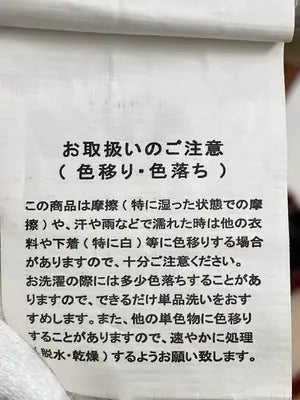 お取扱いのご注意
( 色移り・色落ち )
この商品は摩擦(特に湿った状態での摩
擦)や、汗や雨などで濡れた時は他の衣
料や下着(特に白)等に色移りする場合
がありますので、十分ご注意ください。
お洗濯の際には多少色落ちすることがあ
りますので、できるだけ単品洗いをおす
すめします。また、他の単色物に色移り
することがありますので、速やかに処理
(脱水・乾燥)するようお願い致します。